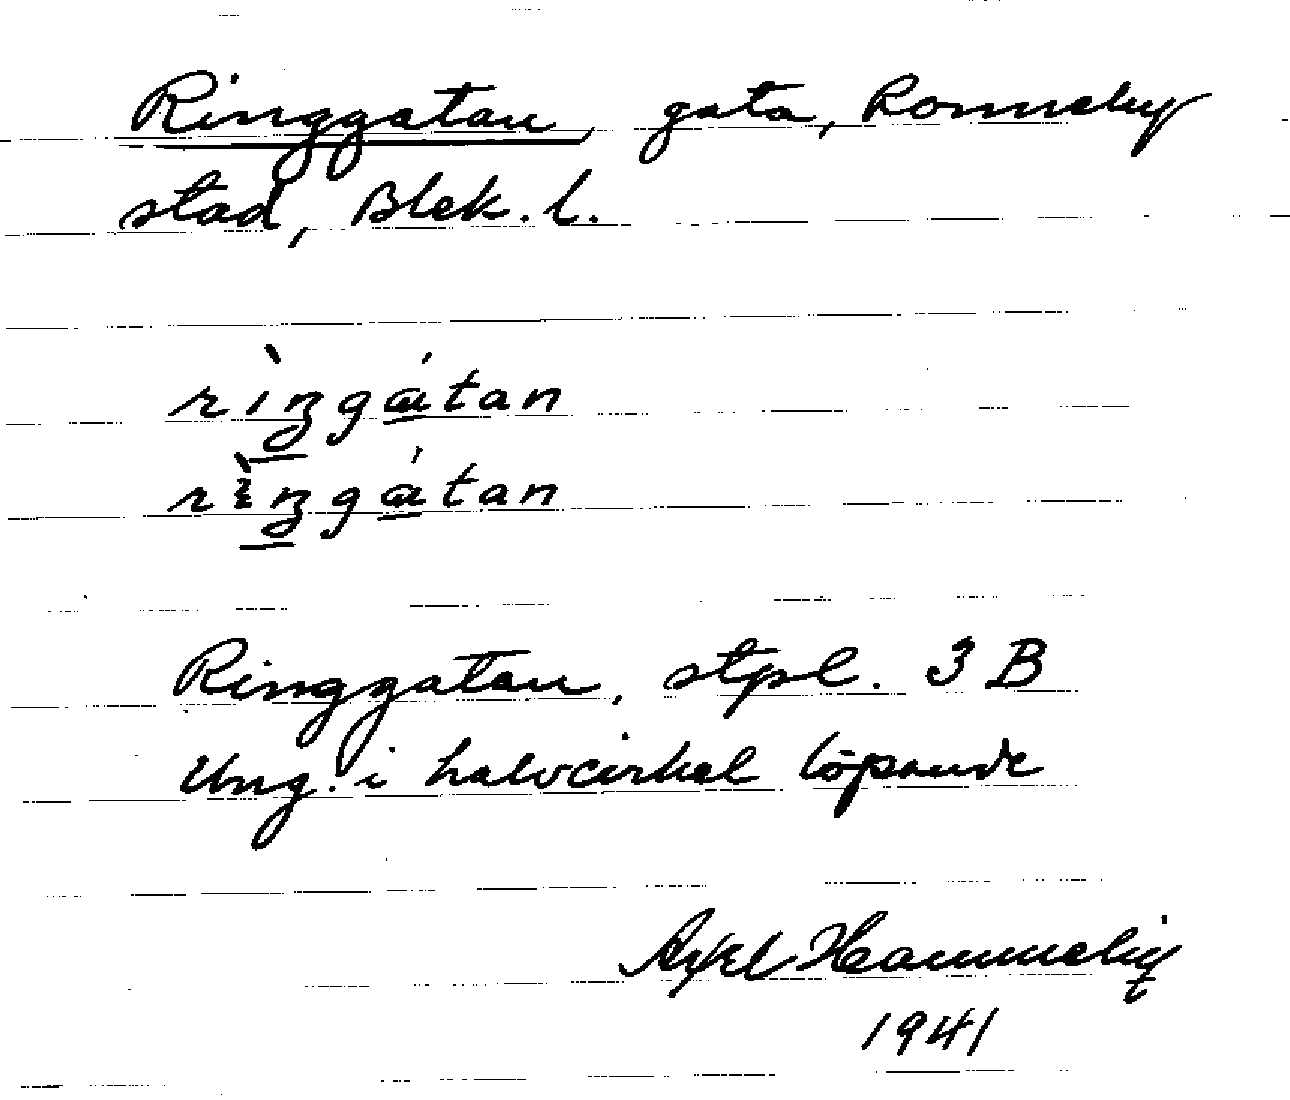 Ringgatan, gata, Ronneby
stad, Blek. l.
rìŋgɑ́tan
rìŋgɑ́tan
Ringgatan, stpl. 3 B
Ung. i halvcirkel löpande
Axel
1941